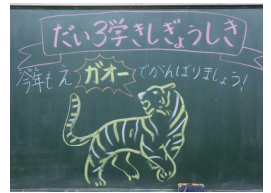 だい3学きしぎょうしき
今年もえガオーでがんばりましょう!